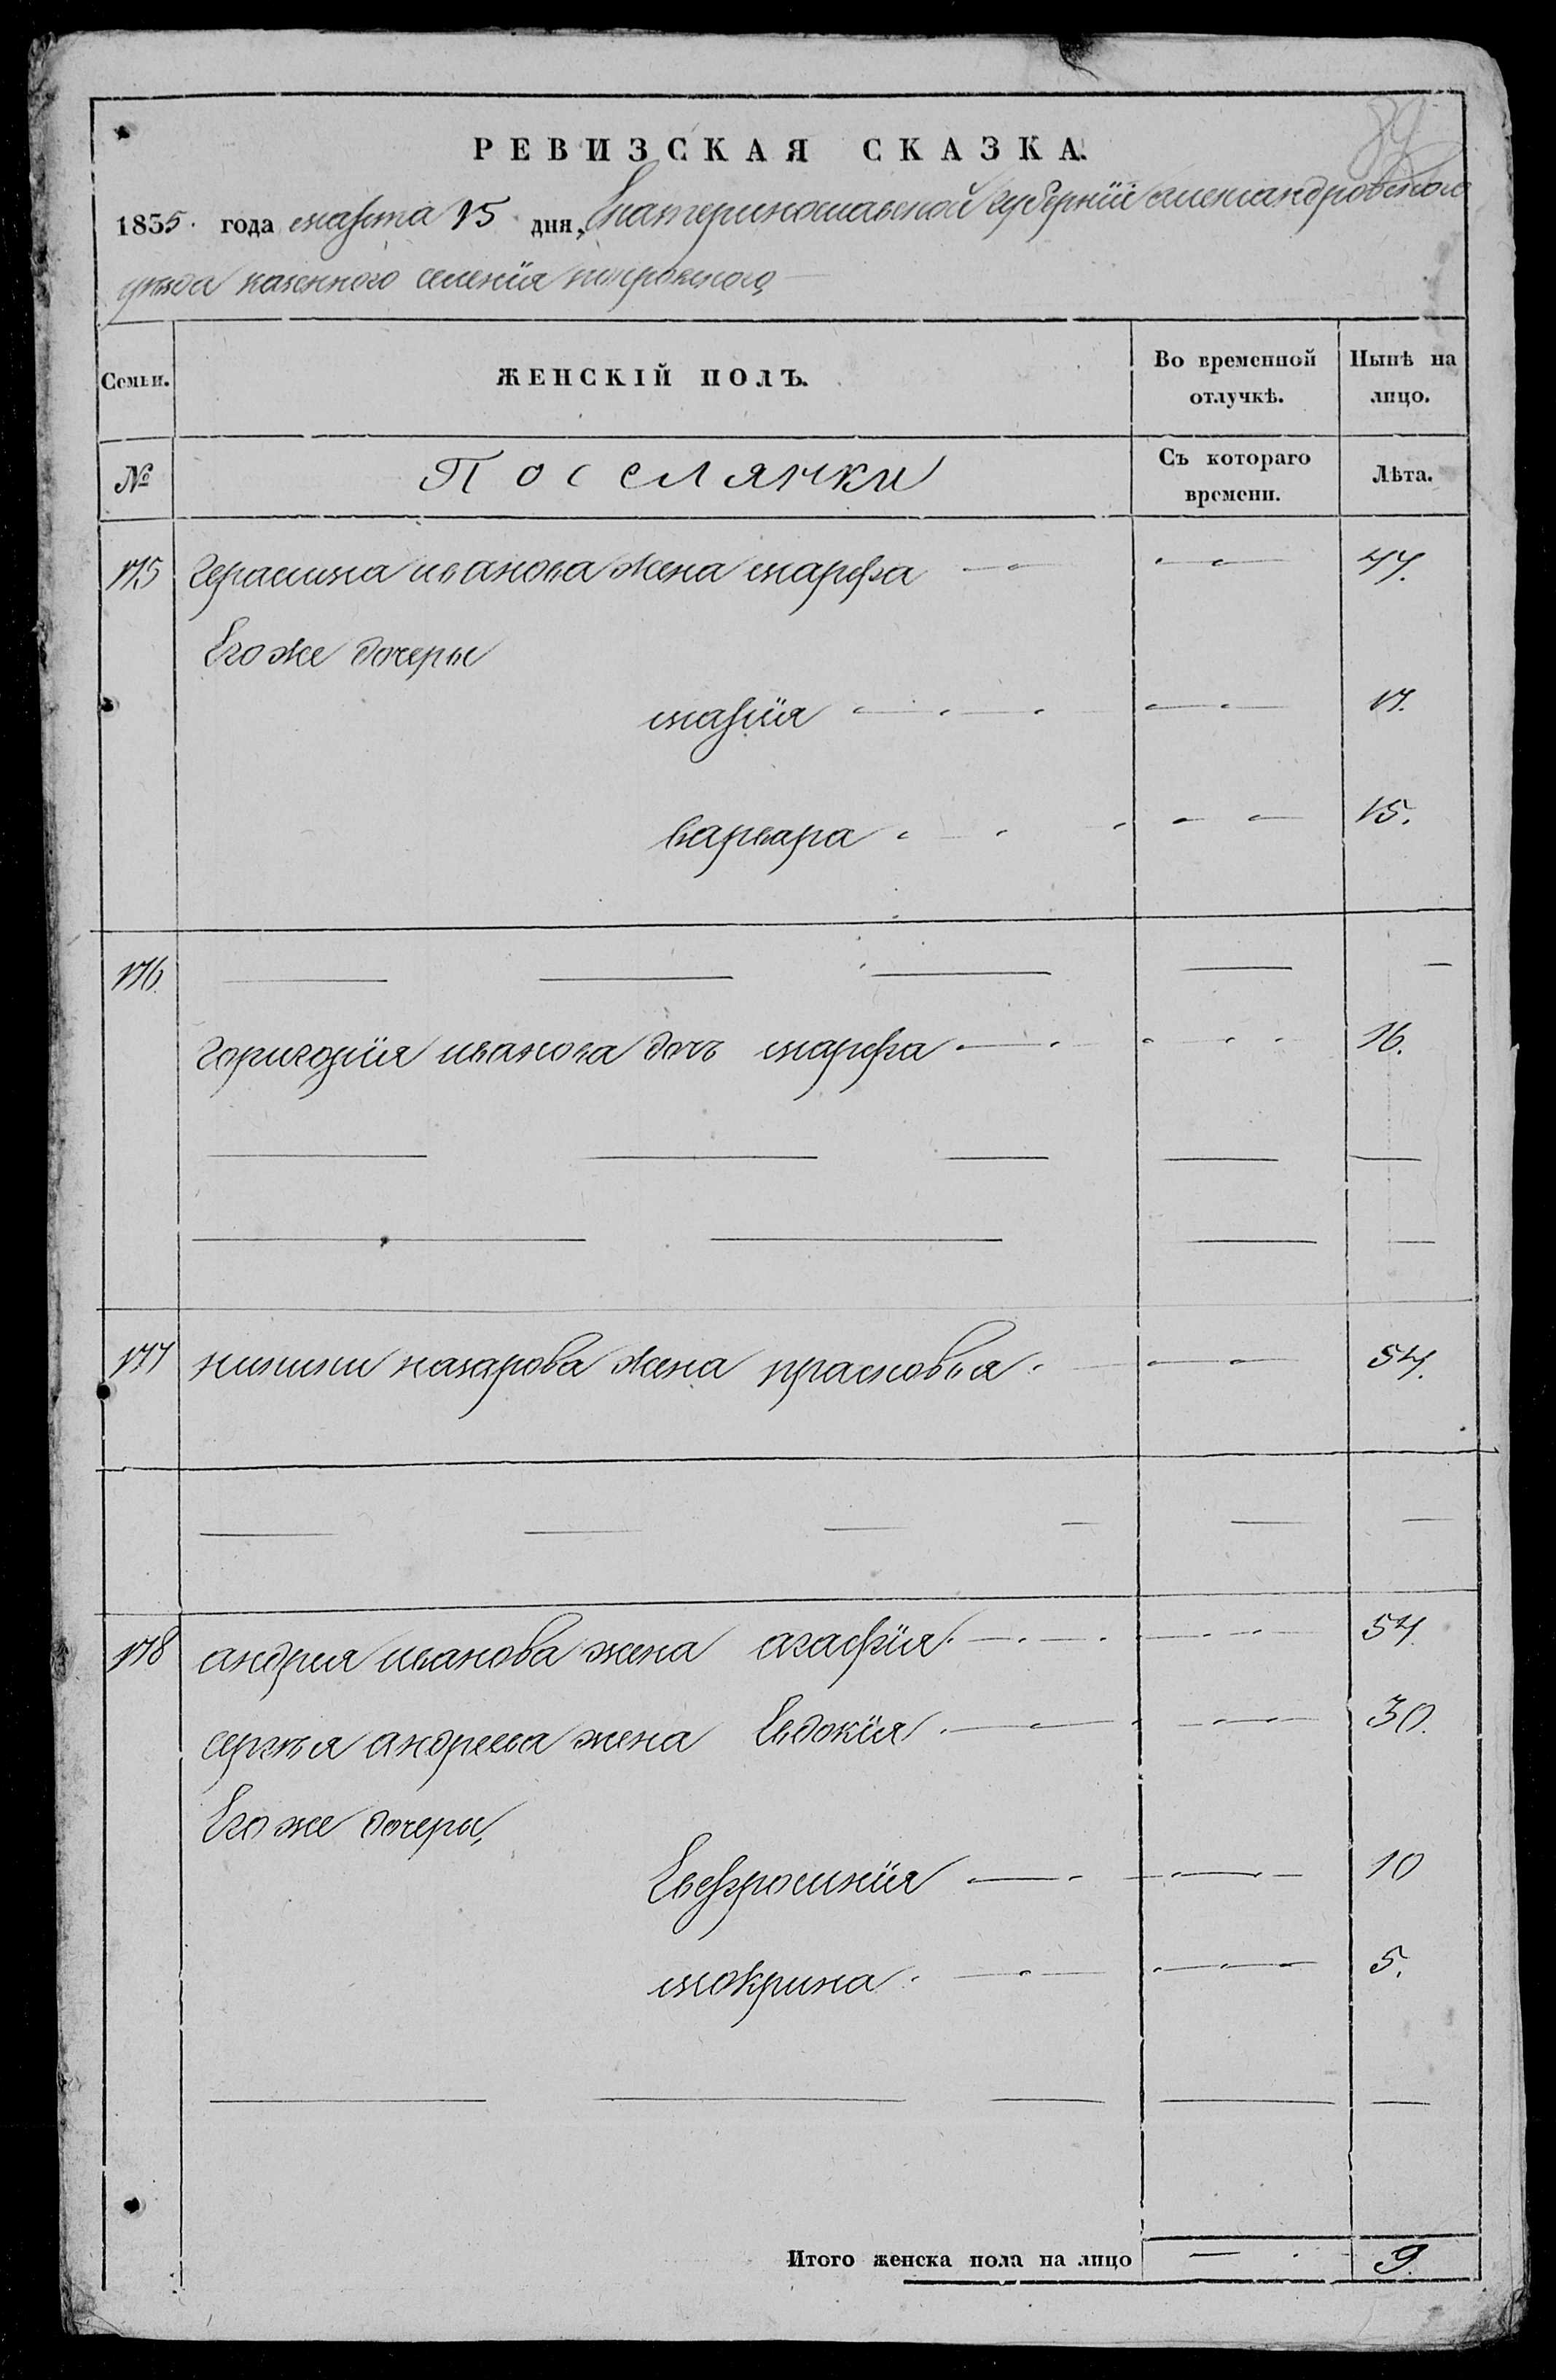 89
РЕВИЗСКАЯ СКАЗКА.
1835. года марта 15 дня, Екатеринославской губернїи александровского
уезда казенного селенїя покровского
Семьи.
ЖЕНСКІЙ ПОЛЪ.
Во временной отлучкѣ.
Нынѣ на лицо.
№
Поселянки
Съ котораго времени.
Лѣта.
175 Герасима иванова жена марфа 44.
Его же дочеры
марїя 17.
варвара 15.
176
григорїя иванова дочь марфа 16.
177 никиты назарова жена прасковья 54.
178 андрея иванова жена агафїя 54.
сергѣя андреева жена Евдокїя 30.
Его же дочеры,
Евфросинїя 10
мокрина 5.
Итого женска пола на лицо 9.